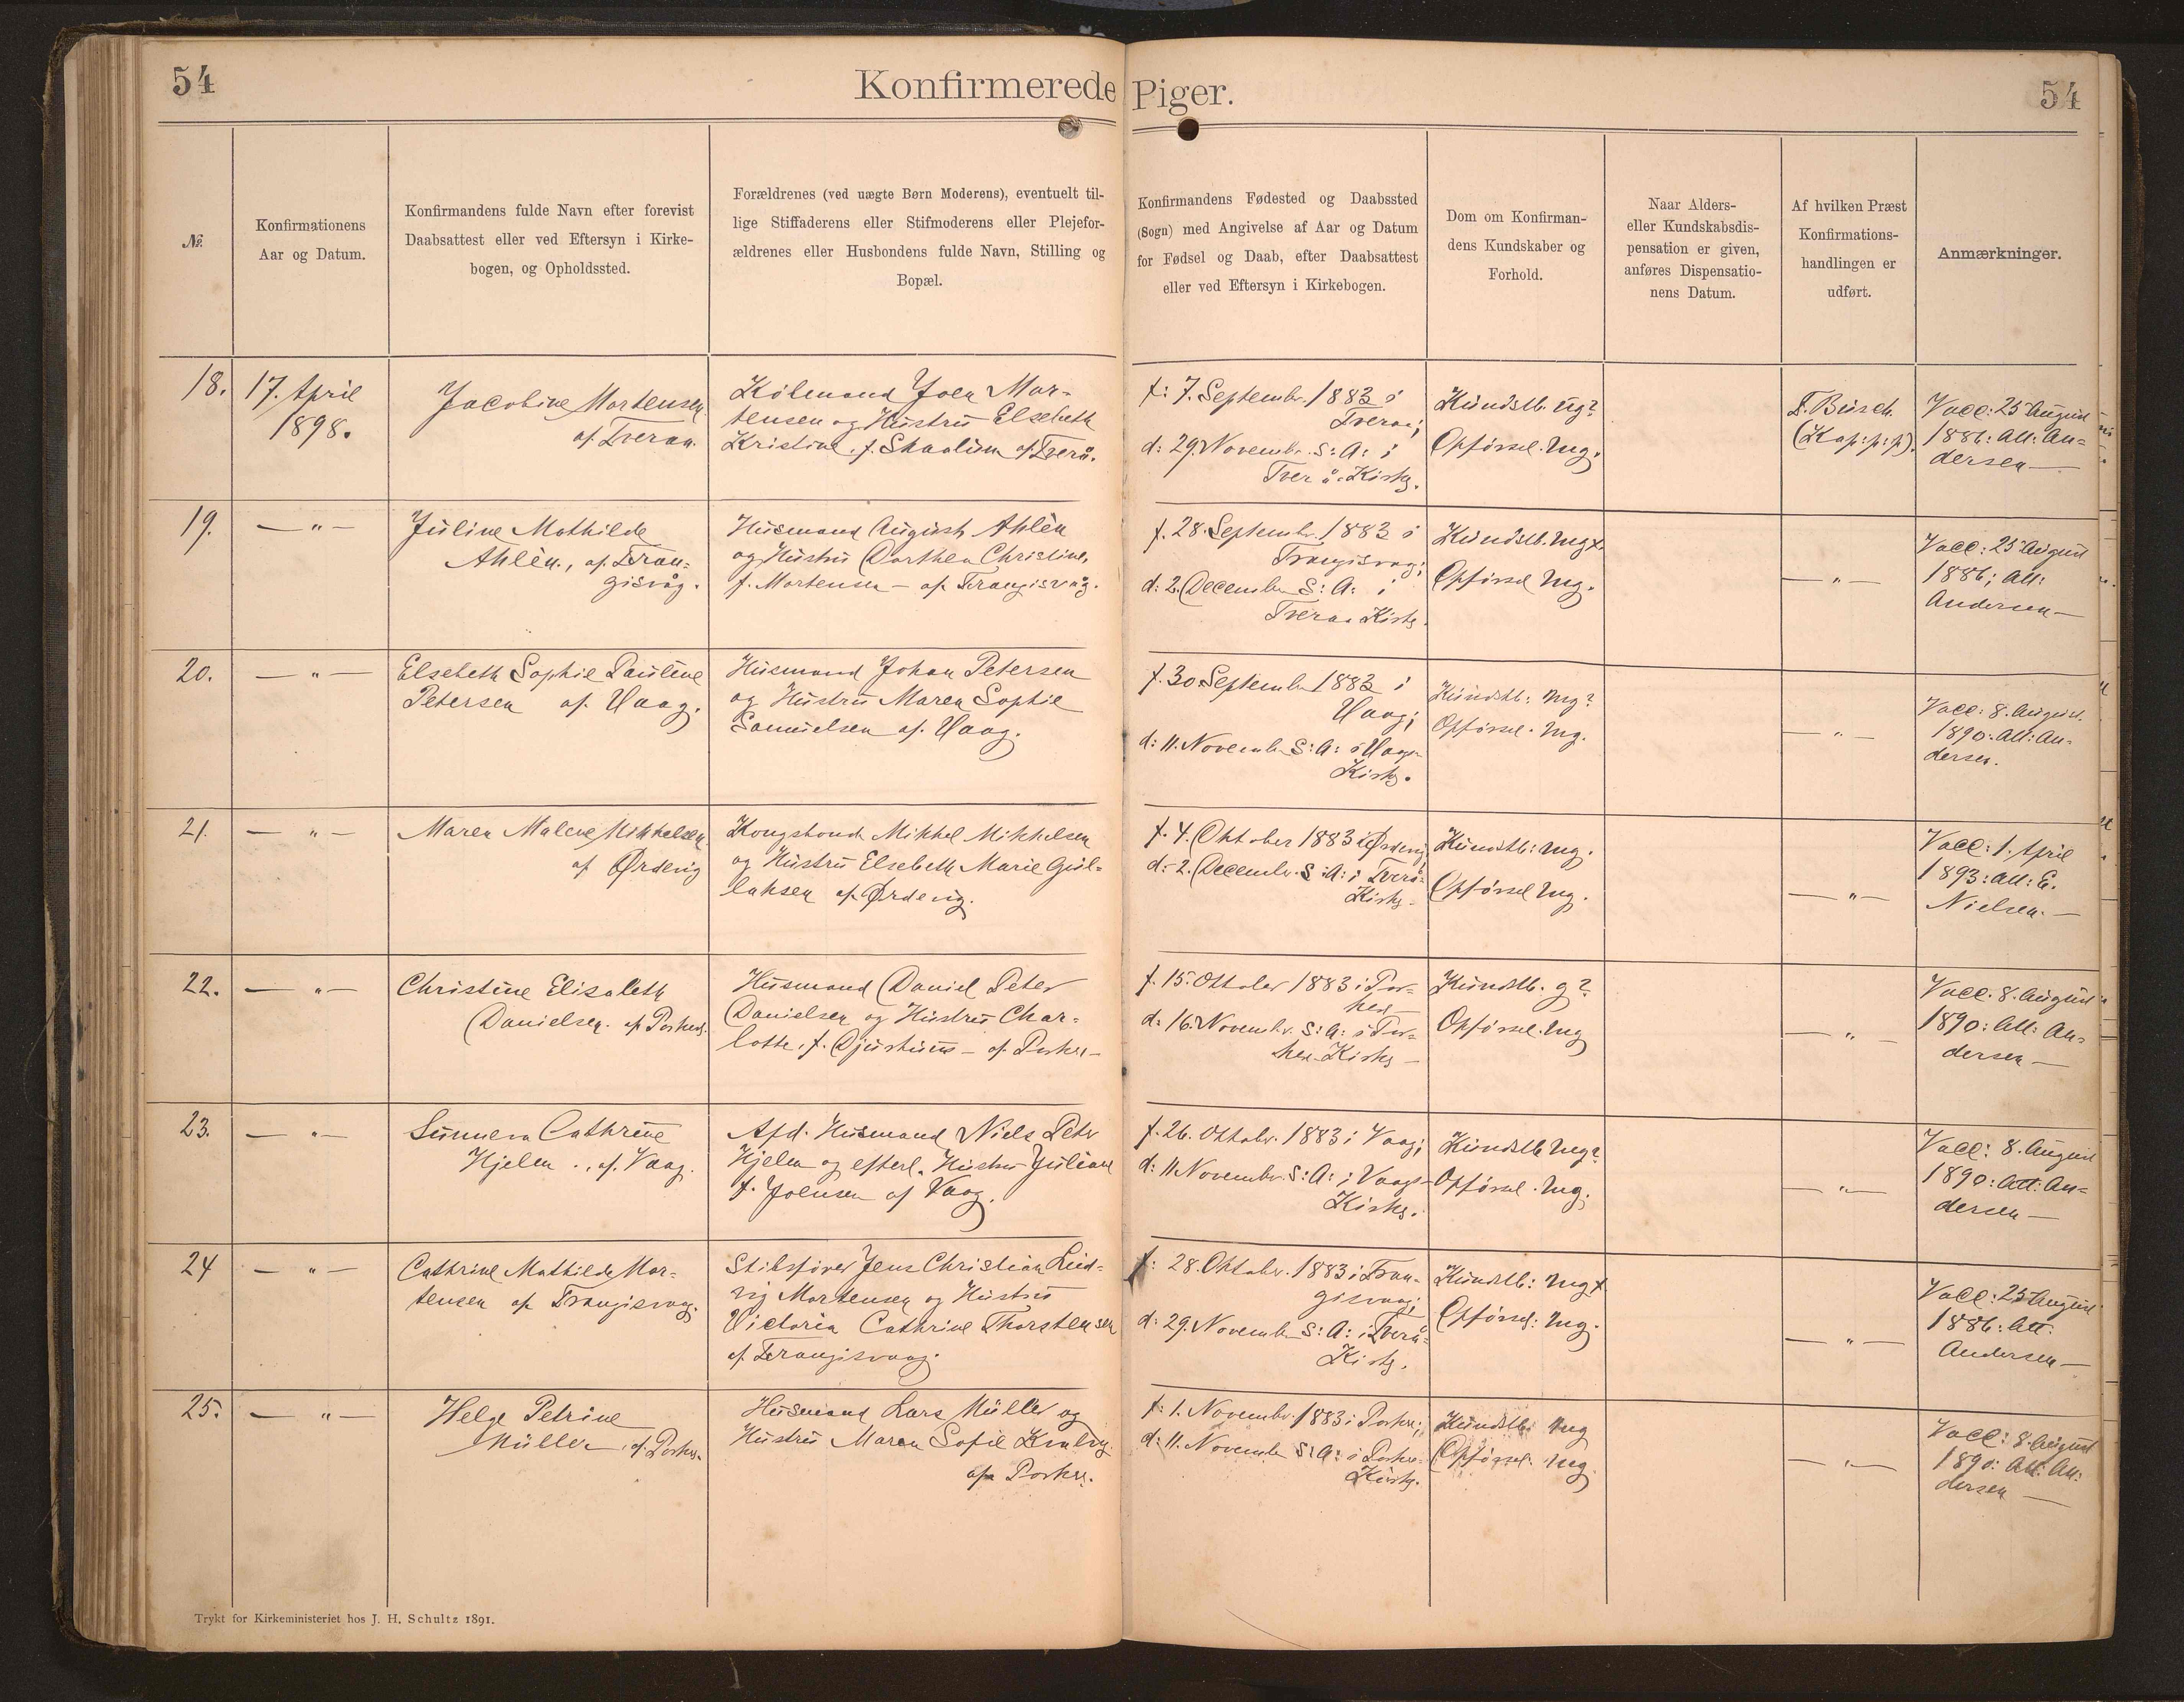 54
Konfirmerede Piger.
54
№.
Konfirmationens
Aar og Datum.
Konfirmandens fulde Navn efter forevist
Daabsattest eller ved Eftersyn i Kirke-
bogen, og Opholdssted.
Forældrenes (ved uægte Børn Moderens), eventuelt til-
lige Stiffaderens eller Stifmoderens eller Plejefor-
ældrenes eller Husbondens fulde Navn, Stilling og
Bopæl.
Konfirmandens Fødested og Daabssted
(Sogn) med Angivelse af Aar og Datum
for Fødsel og Daab, efter Daabsattest
eller ved Eftersyn i Kirkebogen.
Dom om Konfirman-
dens Kundskaber og
Forhold.
Naar Alders-
eller Kundskabsdis-
pensation er given,
anføres Dispensatio-
nens Datum.
Af hvilken Præst
Konfirmations-
handlingen er
udført.
Anmærkninger.
18.
17. April
1898.
Jacobine Mortensen
af Tveraa.
Joen Mor-
tensen og Hustru Elsebeth
Kristine, f. Skaalum af Tverå.
f: 7. Septembr. 1883 i
Tveraa;
d: 29. Novembr. S: A: i
Tverå Kirke.
Kundsk. ug?
Opførsel. mg.
F. Busch.
(Kap: p: p).
Vacc: 25 August
1886: Att: An=
dersen —
19.
— " —
Juline Mathilde
Ahlén., af Tran=
gisvåg.
Husmand August Ahlén
og Hustru Dorthea Christine,
f. Mortensen — af Trangisvåg.
f. 28. Septembr. 1883 i
Trangisvag;
d: 2. December S: A: i
Tveraa Kirke
Kundsk. mgx.
Opførsel mg.
— " —
Vacc: 25 August
1886; Att:
Andersen —
20.
— " —
Elsebeth Sophie Pauline
Petersen af Vaag.
Husmand Johan Petersen
og Hustru Maren Sophie
Samuelsen af Vaag.
f. 30 September 1883 i
Vaag;
d: 11. Novemb. S: A: i Vaags
Kirke.
Kundsk: mg?
Opførsel. mg.
— " —
Vacc: 8. August.
1890: Att: An=
dersen.
21.
— " —
Maren Malene Mikkelsen
af Ørdevig
Kongsbonde Mikkel Mikkelsen
og Hustru Elsebeth Marie Gul=
laksen af Ørdevig.
f. 4. Oktober 1883 i Ørdevig
d: 2. Decembr. S: A: i Tverå=
Kirke
Kundsk: mg.
Opførsel mg.
— " —
Vacc: 1. April
1893: Att: E.
Nielsen. —
22.
— " —
Christine Elisabeth
Danielsen. af Porkere.
Husmand Daniel Peter
Danielsen og Hustru Char=
lotte, f. Djurhuus — af Porkere —
f. 15. Oktober 1883 i Por=
kere
d: 16. Novembr. S: A: i Por=
kere Kirke —
Kundsk. g?
Opførsel. mg
— " —
Vacc. 8. August
1890: Att: An=
dersen —
23.
— " —
Sunneva Cathrine
Hjelm., af Vaag.
Afd. Husmand Niels Peter
Hjelm og efterl. Hustru Juliane
f. Joensen af Vaag.
f. 26. Oktobr. 1883 i Vaag;
d: 11. Novembr. S: A: i Vaags
Kirke.
Kundsk mg?
Opførsel. mg.
— " —
Vacc: 8. August
1890: Att: An=
dersen —
24
— " —
Cathrine Mathilde Mor=
tensen af Trangisvag.
Skibsfører Jens Christian Lud=
vig Mortensen og Hustru
Victoria Cathrine Thorstensen
af Trangisvaag.
f: 28. Oktobr. 1883 i Tran=
gisvaag;
d: 29. Novemb. S: A: i Tverå=
Kirke.
Kundsk: mgx
Opførsel: mg.
— " —
Vacc: 25 August
1886: Att:
Andersen —
25.
— " —
Helge Petrine
Müller, af Porkere.
Husmand Lars Müller og
Hustru Maren Sofie
af Porkere.
f: 1. Novembr. 1883 i Porkere;
d: 11. Novembr S: A: i Porkere
Kirke.
Kundsk: mg
Opførsel: mg
— " —
Vacc: 8. August
1890: Att: An:
dersen —
Trykt for Kirkeministeriet hos J. H. Schultz 1891.